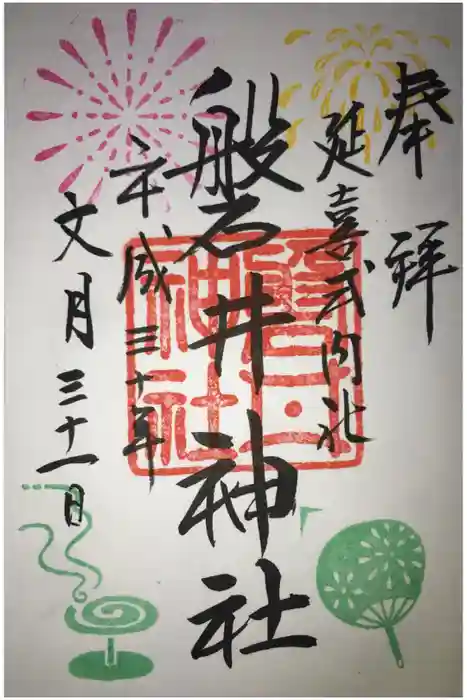 奉拝
延喜式内社
磐井神社
平成三十年
文月三十一日